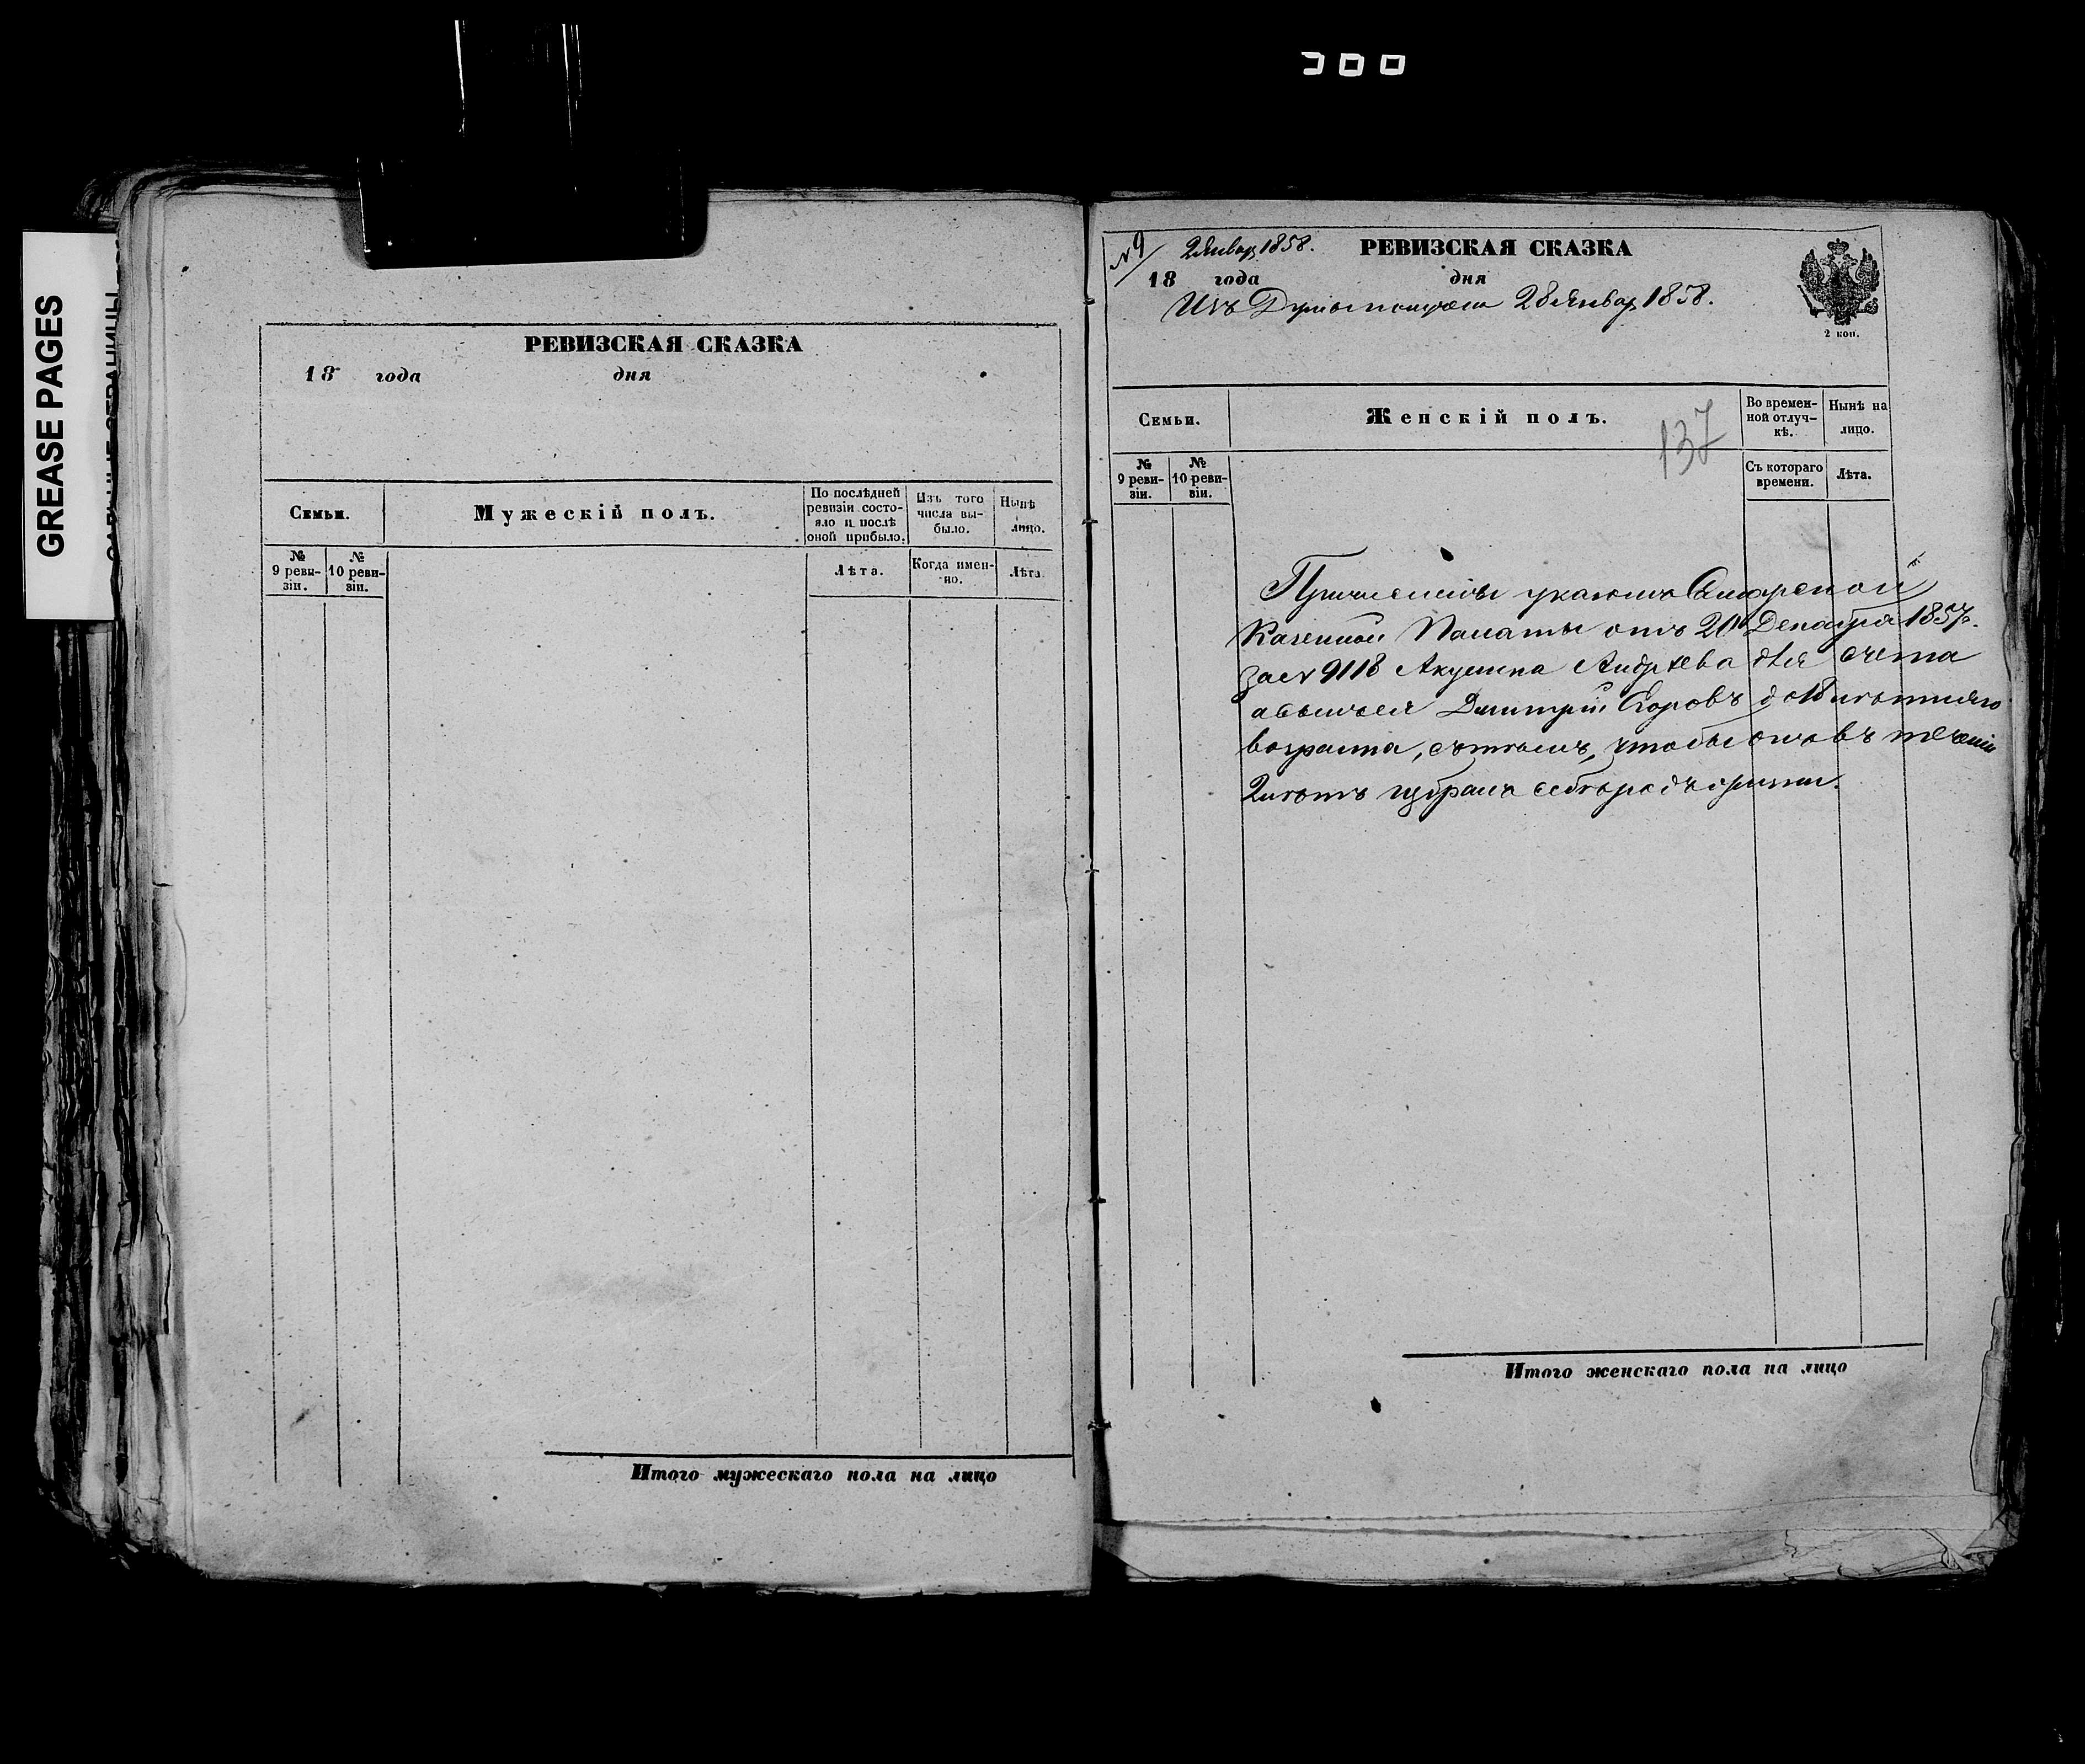 300
GREASE PAGES
РЕВИЗСКАЯ СКАЗКА
18 года дня
Семьи.
Мужескій полъ.
По послѣдней ревизіи состояло и послѣ оной прибыло.
Изъ того числа выбыло.
Нынѣ лицо.
№ 9 ревизіи.
№ 10 ревизіи.
Лѣта.
Когда именно.
Лѣта
Итого мужескаго пола на лицо
№ 9
2 Январ 1858.
РЕВИЗСКАЯ СКАЗКА
18 года дня
Изъ Думы 28 Январ 1858.
2 коп.
Семьи.
Женскій полъ.
137
Во временной отлучкѣ.
Нынѣ на лицо.
№ 9 ревизіи.
№ 10 ревизіи.
Съ котораго времени.
Лѣта.
Причислены указомъ Самарской
Казенной Палаты отъ 20 Декабря 1857 г.
за № 9118 Акулина Андрѣева для счета
а сынъ ея Дмитрій Егоровъ до 18 лѣтняго
возраста, съ тѣмъ, чтобы онъ въ теченіи
2 лѣтъ избралъ себѣ родъ жизни.
Итого женскаго пола на лицо